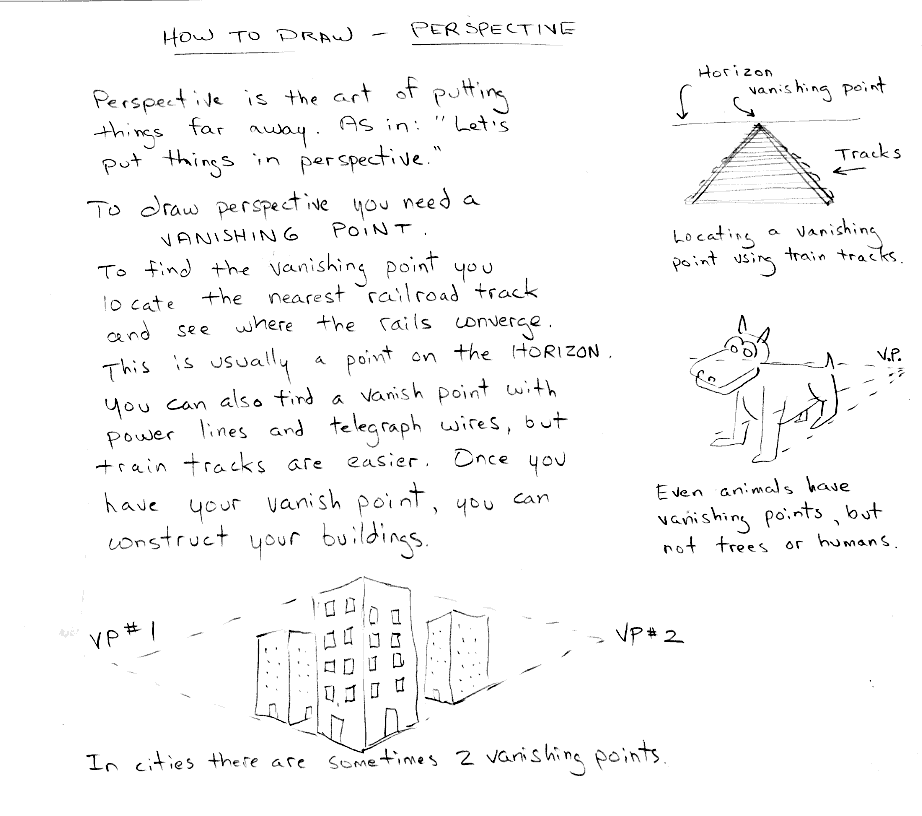 HOW TO DRAW - PERSPECTIVE
Perspective is the art of putting
things far away. As in: "Let's
put things in perspective."
To draw perspective you need a
VANISHING POINT.
To find the vanishing point you
locate the nearest railroad track
and see where the rails converge.
This is usually a point on the HORIZON.
You can also find a vanish point with
power lines and telegraph wires, but
train tracks are easier. Once you
have your vanish point, you can
construct your buildings.
Horizon
vanishing point
Tracks
Locating a vanishing
point using train tracks.
V.P.
Even animals have
vanishing points, but
not trees or humans.
VP#1
VP#2
In cities there are sometimes 2 vanishing points.